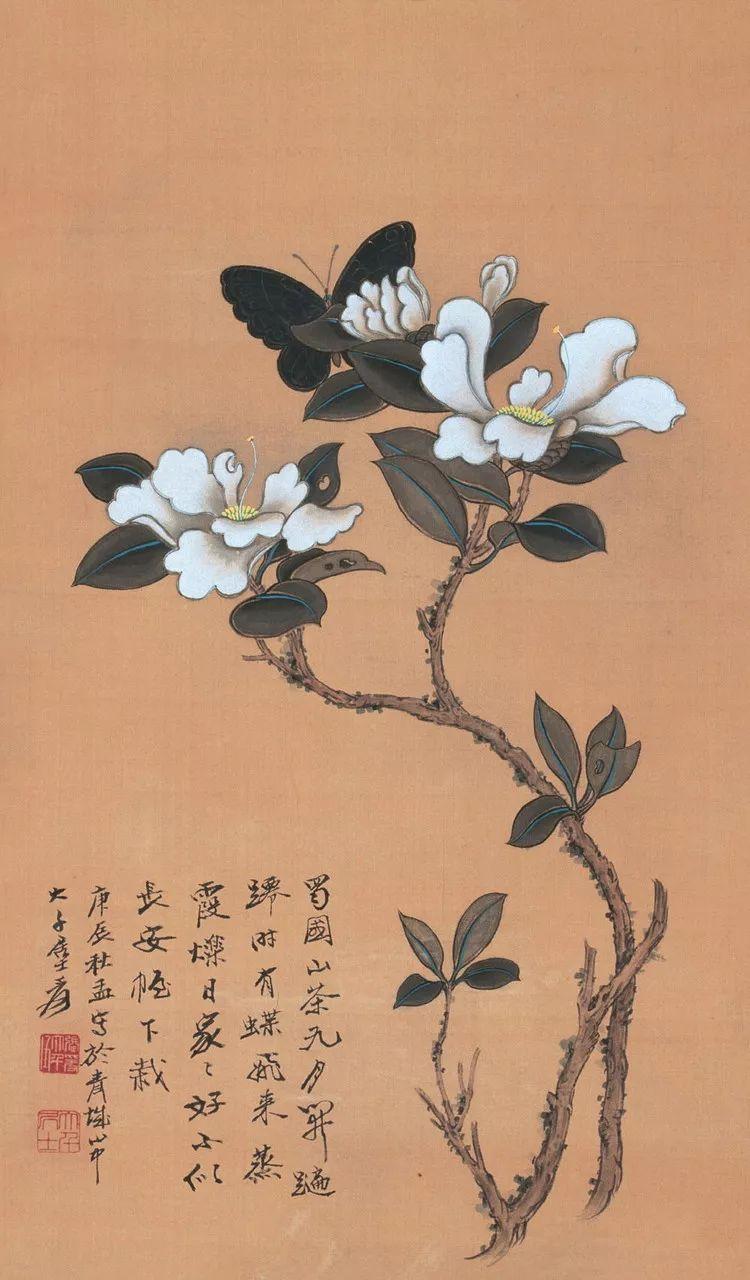 蜀國山茶九月開蹁
躚時有蝶飛來蒸
霞爍日家〻好不似
長安幄下栽
庚辰秋孟寫於青城山中
大千張爰
大千居士